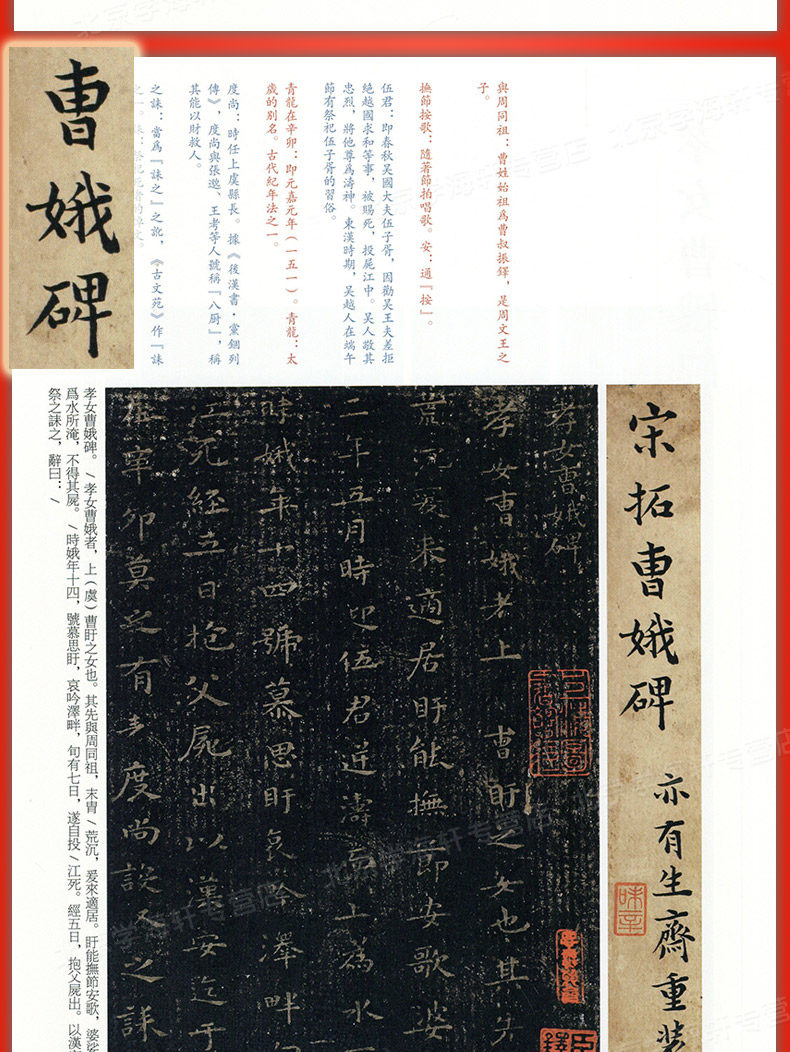 曹娥碑
與周同祖：曹姓始祖爲曹叔振鐸，是周文王之
子。
撫節按歌：隨著節拍唱歌。安：通『按』。
伍君：即春秋吴國大夫伍子胥，因勸吴王夫差拒
絶越國求和等事，被賜死，投屍江中。吴人敬其
忠烈，將他尊爲濤神。東漢時期，吴越人在端午
節有祭祀伍子胥的習俗。
青龍在辛卯：即元嘉元年（一五一）。青龍：太
歲的别名。古代紀年法之一。
度尚：時任上虞縣長。據《後漢書·黨錮列
傳》，度尚與張邈、王考等人號稱『八厨』，稱
其能以財救人。
之誄：當爲『誄之』之訛，《古文苑》作『誄
宋拓曹娥碑 亦有生齋重裝
味辛
孝女曹娥碑
孝女曹娥者上 曹盱之女也其先
荒沉爰來適居盱能撫節安歌婆
二年五月時迎伍君逆濤而上爲水
時娥年十四號慕思盱哀吟澤畔旬
江死經五日抱父屍出以漢安迄于
在辛卯莫之有表度尚設祭之誄
孝女曹娥碑。/孝女曹娥者，上（虞）曹盱之女也。其先與周同祖，末胄/荒沉，爰來適居。盱能撫節安歌，婆娑
爲水所淹，不得其屍。/時娥年十四，號慕思盱，哀吟澤畔，旬有七日，遂自投/江死。經五日，抱父屍出。以漢安
祭之誄之，辭曰：/
北京学海轩专营店